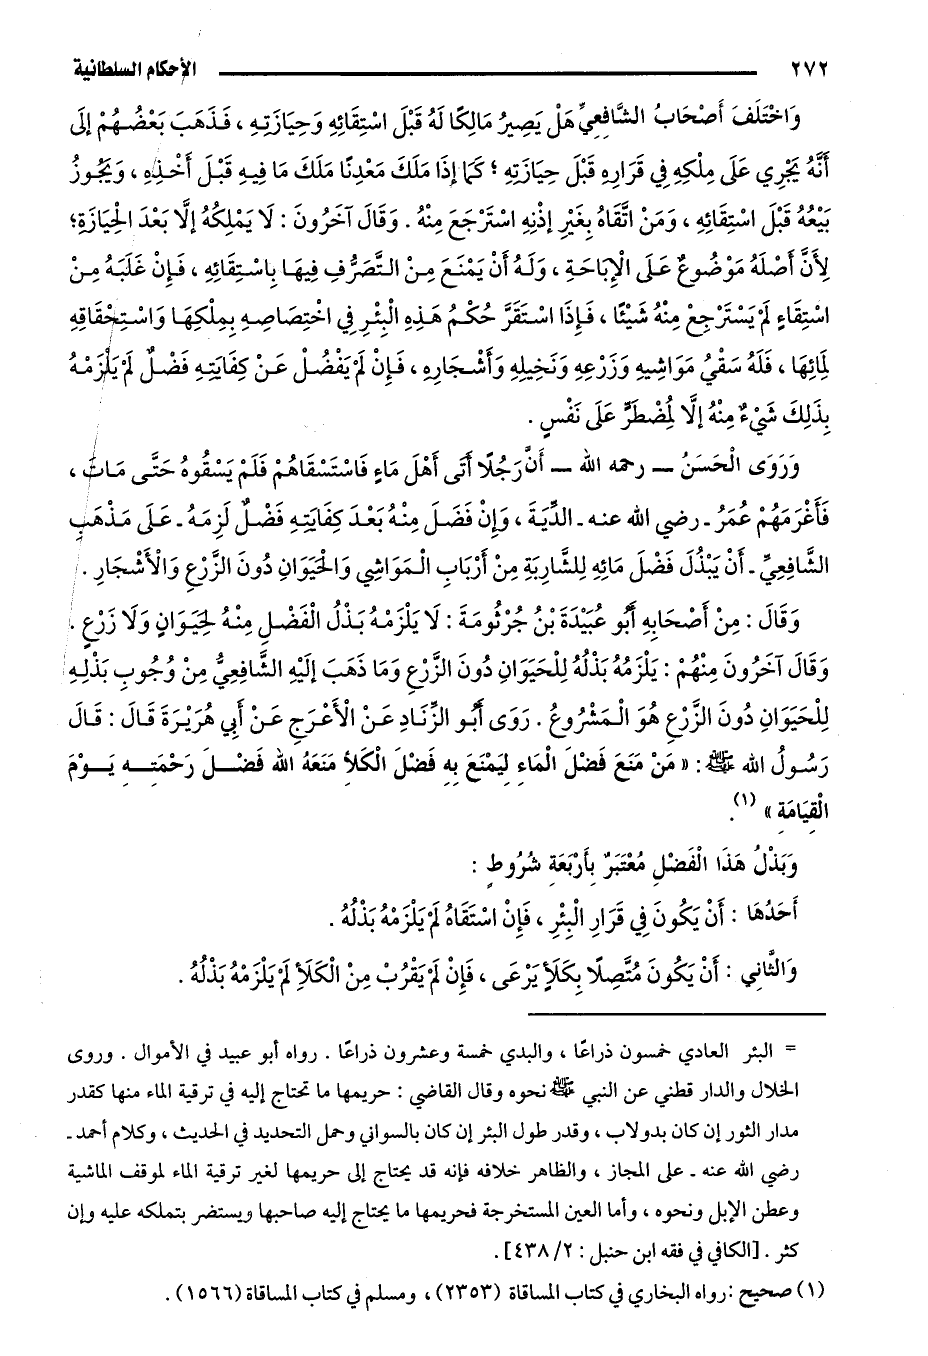 ٢٧٢ الأحكام السلطانية
وَاخْتَلَفَ أَصْحَابُ الشَّافِعِيِّ هَلْ يَصِيرُ مَالِكًا لَهُ قَبْلَ اسْتِقَائِهِ وَحِيَازَتِهِ ، فَذَهَبَ بَعْضُهُمْ إلَى
أَنَّهُ يَجْرِي عَلَى مِلْكِهِ فِي قَرَارِهِ قَبْلَ حِيَازَتِهِ ؛ كَمَا إذَا مَلَكَ مَعْدِنًا مَلَكَ مَا فِيهِ قَبْلَ أَخْذِهِ ، وَيَجُوزُ
بَيْعُهُ قَبْلَ اسْتِقَائِهِ ، وَمَنْ اتَّقَاهُ بِغَيْرِ إذْنِهِ اسْتَرْجَعَ مِنْهُ . وَقَالَ آخَرُونَ : لَا يَمْلِكُهُ إلَّا بَعْدَ الْحِيَازَةِ؛
لِأَنَّ أَصْلَهُ مَوْضُوعٌ عَلَى الْإِبَاحَةِ ، وَلَهُ أَنْ يَمْنَعَ مِنْ التَّصَرُّفِ فِيهَا بِاسْتِقَائِهِ ، فَإِنْ غَلَبَهُ مِنْ
اسْتِقَاءٍ لَمْ يَسْتَرْجِعْ مِنْهُ شَيْئًا ، فَإِذَا اسْتَقَرَّ حُكْمُ هَذِهِ الْبِئْرِ فِي اخْتِصَاصِهِ بِمِلْكِهَا وَاسْتِحْقَاقِهِ
لِمَائِهَا ، فَلَهُ سَقْيُ مَوَاشِيهِ وَزَرْعِهِ وَنَخِيلِهِ وَأَشْجَارِهِ ، فَإِنْ لَمْ يَفْضُلْ عَنْ كِفَايَتِهِ فَضْلٌ لَمْ يَلْزَمْهُ
بِذَلِكَ شَيْءٌ مِنْهُ إلَّا لِمُضْطَرٍّ عَلَى نَفْسٍ .
وَرَوَى الْحَسَنُ – رحمه الله – أَنَّ رَجُلًا أَتَى أَهْلَ مَاءٍ فَاسْتَسْقَاهُمْ فَلَمْ يَسْقُوهُ حَتَّى مَاتَ ،
فَأَغْرَمَهُمْ عُمَرُ - رضي الله عنه - الدِّيَةَ ، وَإِنْ فَضَلَ مِنْهُ بَعْدَ كِفَايَتِهِ فَضْلٌ لَزِمَهُ - عَلَى مَذْهَبِ
الشَّافِعِيِّ - أَنْ يَبْذُلَ فَضْلَ مَائِهِ لِلشَّارِبَةِ مِنْ أَرْبَابِ الْمَوَاشِي وَالْحَيَوَانِ دُونَ الزَّرْعِ وَالْأَشْجَارِ .
وَقَالَ : مِنْ أَصْحَابِهِ أَبُو عُبَيْدَةَ بْنُ جُرْثُومَةَ : لَا يَلْزَمُهُ بَذْلُ الْفَضْلِ مِنْهُ لِحَيَوَانٍ وَلَا زَرْعٍ .
وَقَالَ آخَرُونَ مِنْهُمْ : يَلْزَمُهُ بَذْلُهُ لِلْحَيَوَانِ دُونَ الزَّرْعِ وَمَا ذَهَبَ إلَيْهِ الشَّافِعِيُّ مِنْ وُجُوبِ بَذْلِهِ
لِلْحَيَوَانِ دُونَ الزَّرْعِ هُوَ الْمَشْرُوعُ . رَوَى أَبُو الزِّنَادِ عَنْ الْأَعْرَجِ عَنْ أَبِي هُرَيْرَةَ قَالَ : قَالَ
رَسُولُ الله ﷺ : « مَنْ مَنَعَ فَضْلَ الْمَاءِ لِيَمْنَعَ بِهِ فَضْلَ الْكَلَأِ مَنَعَهُ الله فَضْلَ رَحْمَتِهِ يَوْمَ
الْقِيَامَةِ » (١).
وَبَذْلُ هَذَا الْفَضْلِ مُعْتَبَرٌ بِأَرْبَعَةِ شُرُوطٍ :
أَحَدُهَا : أَنْ يَكُونَ فِي قَرَارِ الْبِئْرِ ، فَإِنْ اسْتَقَاهُ لَمْ يَلْزَمْهُ بَذْلُهُ .
وَالثَّانِي : أَنْ يَكُونَ مُتَّصِلًا بِكَلَأٍ يَرْعَى ، فَإِنْ لَمْ يَقْرُبْ مِنْ الْكَلَأِ لَمْ يَلْزَمْهُ بَذْلُهُ .
= البئر العادي خمسون ذراعًا ، والبدي خمسة وعشرون ذراعًا . رواه أبو عبيد في الأموال . وروى
الخلال والدار قطني عن النبي ﷺ نحوه وقال القاضي : حريمها ما تحتاج إليه في ترقية الماء منها كقدر
مدار الثور إن كان بدولاب ، وقدر طول البئر إن كان بالسواني وحمل التحديد في الحديث ، وكلام أحمد -
رضي الله عنه - على المجاز ، والظاهر خلافه فإنه قد يحتاج إلى حريمها لغير ترقية الماء لموقف الماشية
وعطن الإبل ونحوه ، وأما العين المستخرجة فحريمها ما يحتاج إليه صاحبها ويستضر بتملكه عليه وإن
كثر . [الكافي في فقه ابن حنبل : ٢/ ٤٣٨] .
(١) صحيح :رواه البخاري في كتاب المساقاة (٢٣٥٣) ، ومسلم في كتاب المساقاة (١٥٦٦) .